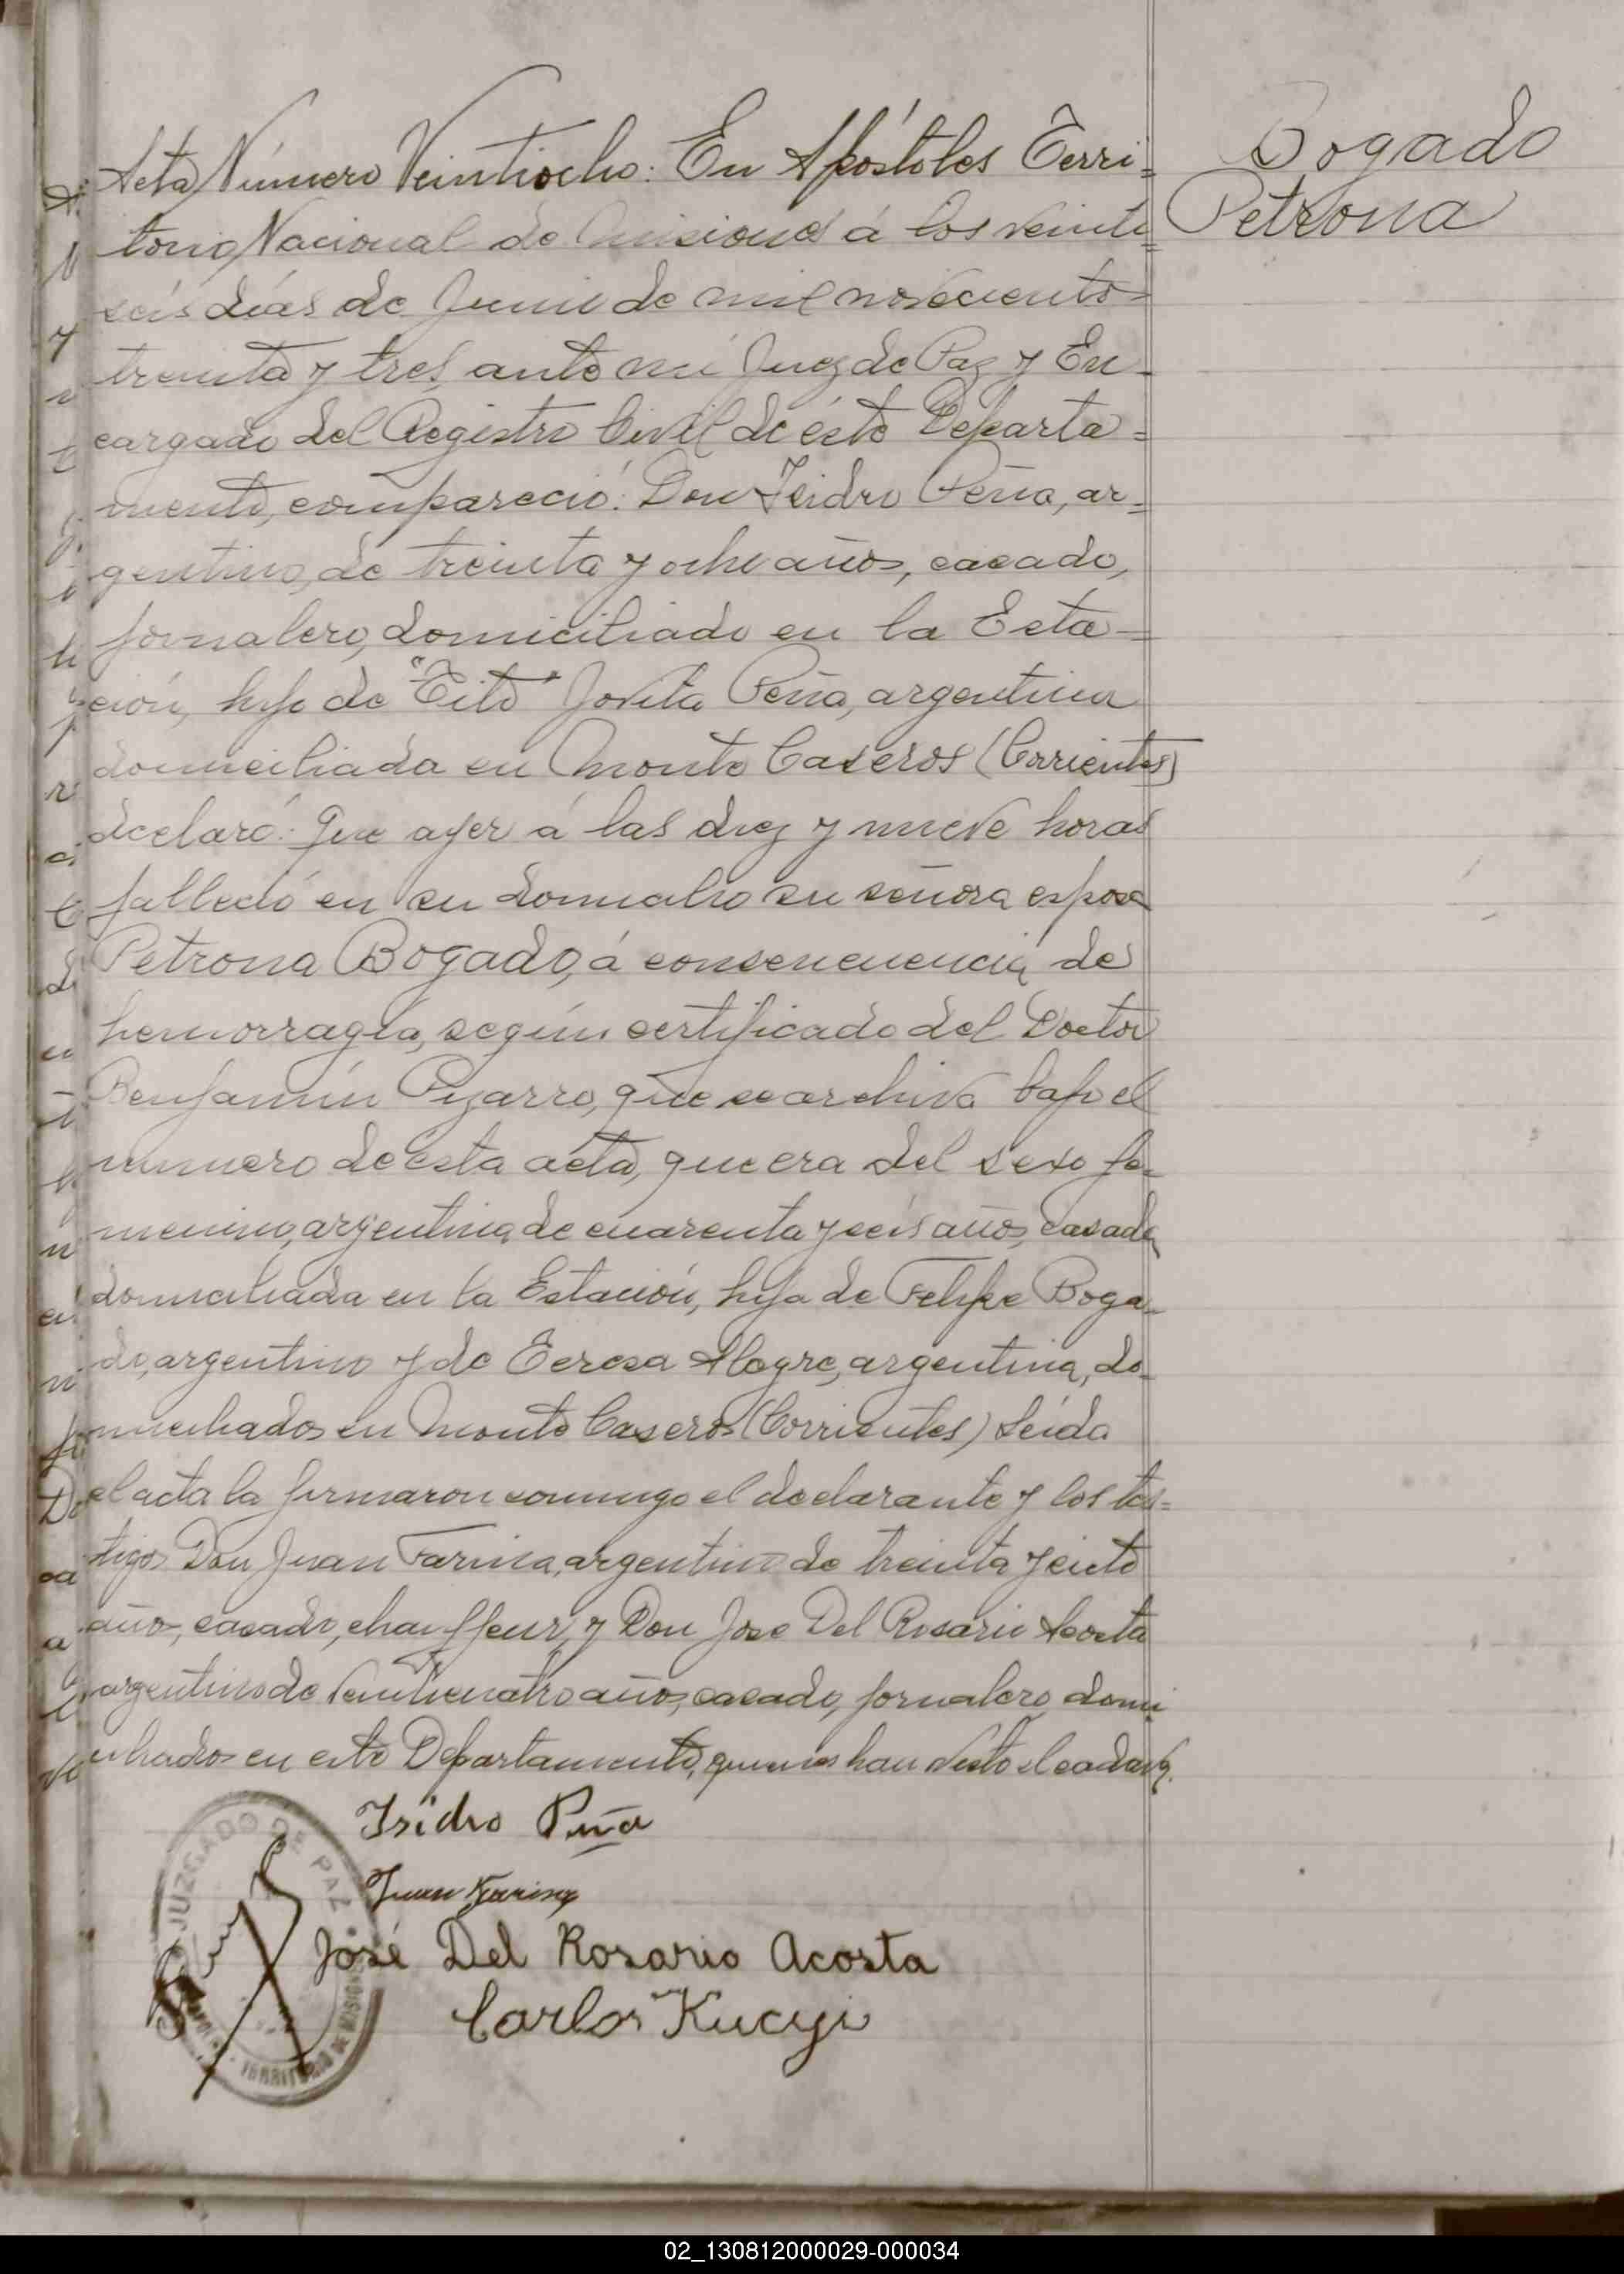 Bogado
Petrona
Acta Número Veintiocho: En Apóstoles Terri=
torio Nacional de Misiones á los veinti=
seis días de Junio de mil novecientos
treinta y tres, ante mi Juez de Paz y En-
cargado del Registro Civil de éste Departa=
mento, compareció: Don Isidro Peña, ar=
gentino, de treinta y ocho años, casado,
jornalero, domiciliado en la Esta=
ción, hijo de "Tito" Jovita Peña, argentina
domiciliada en Monte Caseros (Corrientes)
declaró: Que ayer á las diez y nueve horas
falleció en su domicilio su señora esposa
Petrona Bogado, á consencuencia de
hemorragia, según certificado del Doctor
Benjamín Pizarro, que se archiva bajo el
número de ésta acta, que era del sexo fe-
menino, argentina, de cuarenta y seis años, casada,
domiciliada en la Estación, hija de Felipe Boga-
do, argentino y de Teresa Alegre, argentina, do-
miciliados en Monte Caseros (Corrientes) Leída
el acta la firmaron conmigo el declarante y los tes=
tigos Don Juan Farina, argentino de treinta y siete
años, casado, chauffeur, y Don Jose Del Rosario Acosta
argentino de veinticuatro años, casado, jornalero, domi
ciliados en este Departamento, quienes han visto el cadaver.
Isidro Peña
Juan Farina
José Del Rosario Acosta
Carlos Kucyi
JUZGADO DE PAZ
TERRITORIO DE MISIONES
02_130812000029-000034